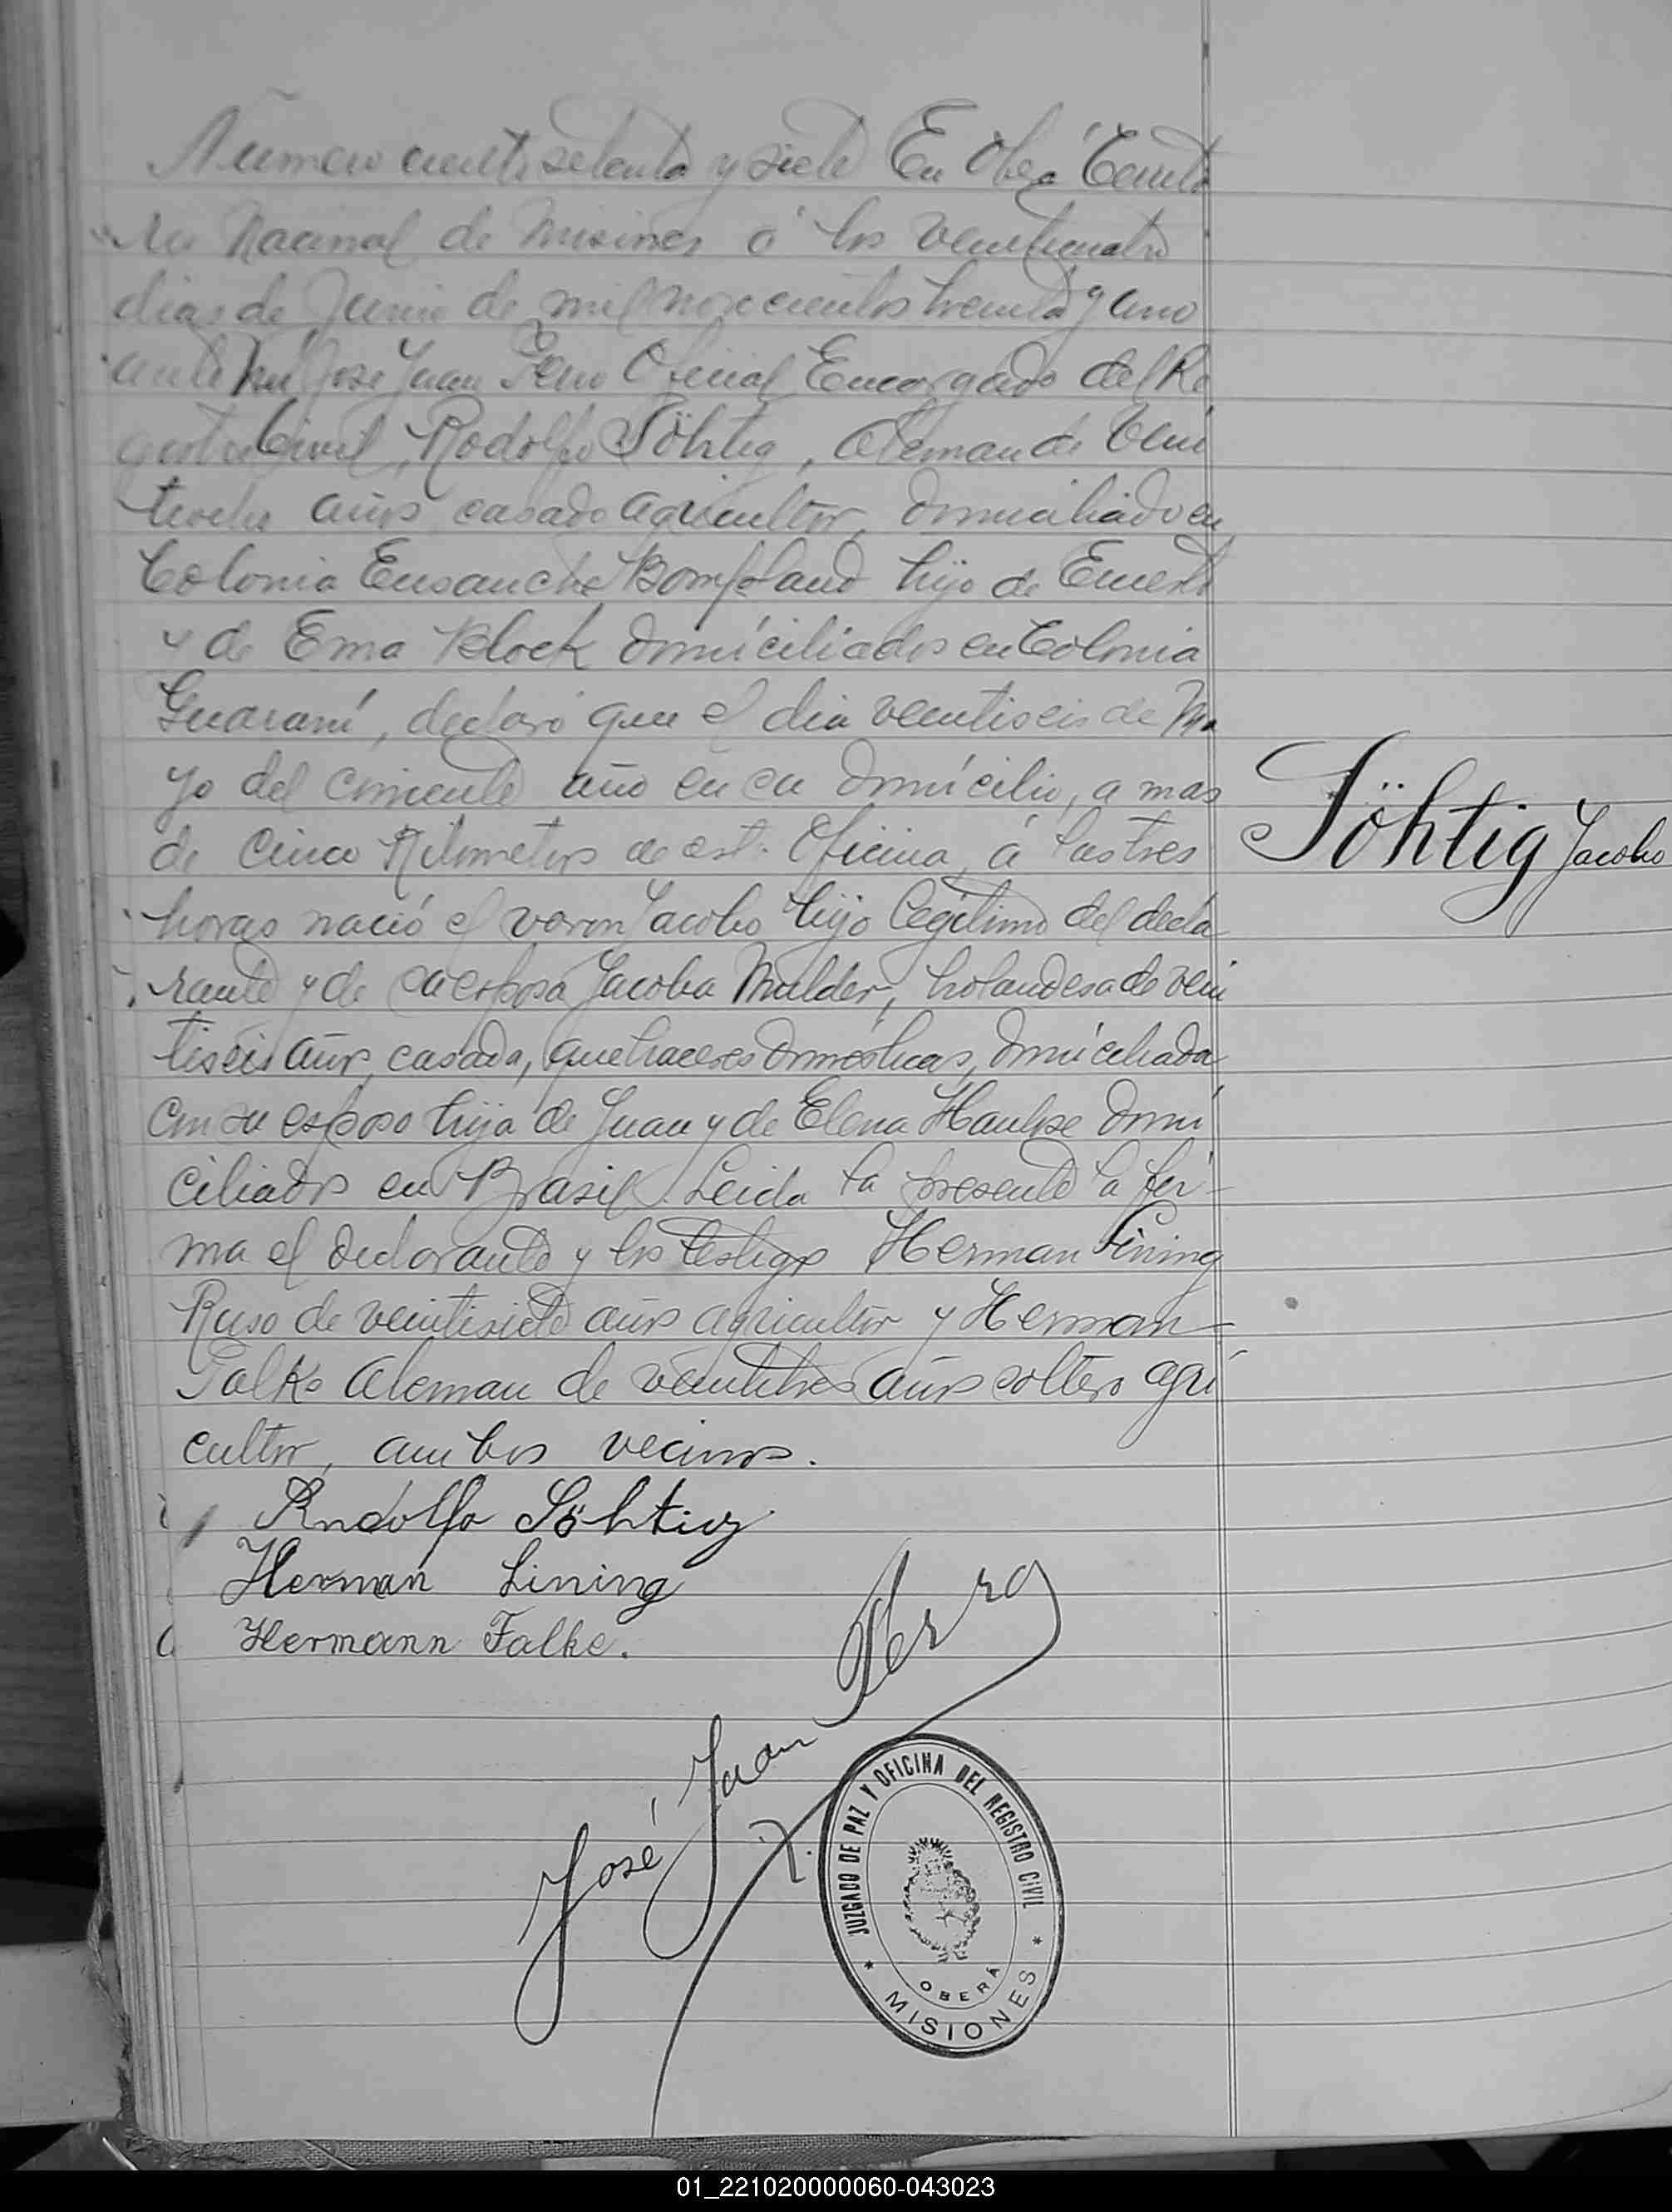 Número ciento setenta y siete En Oberá Territo
rio Nacional de Misiones á los veinticuatro
dias de Junio de mil novecientos treinta y uno
ante mi José Juan Perro Oficial Encargado del Re
gistro Civil, Rodolfo Söhtig, Aleman de vein
tiocho años casado agricultor, domiciliado en
Colonia Ensanche Bompland hijo de Ernesto
y de Ema Block domiciliados en Colonia
Guaraní, declaró que el dia veintiseis de Ma
yo del corriente año en su domícilio, a mas
de cinco Kilometros de esta Oficina, á las tres
horas nació el varon Jacobo hijo legítimo del decla
rante y de su esposa Jacoba Mulder, holandesa de vein
tiseis años, casada, quehaceres domésticos, domiciliada
con su esposo hija de Juan y de Elena domi
ciliados en Brasil. Leida la presente la fir-
ma el declarante y los testigos Herman Lining
Ruso de veintisiete años agricultor y Herman
Falke Aleman de veintitres años soltero agri
cultor, ambos vecinos.
Rodolfo Söhtig
Herman Lining
Hermann Falke.
José Juan Perro
Söhtig Jacobo
JUZGADO DE PAZ Y OFICINA DEL REGISTRO CIVIL
OBERÁ
* MISIONES *
01_221020000060-043023